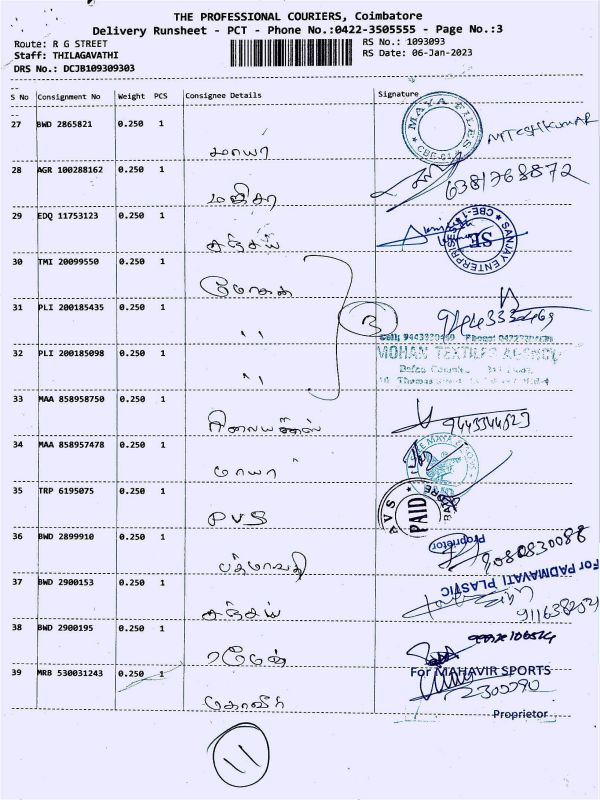 THE PROFESSIONAL COURIERS, Coimbatore
Delivery Runsheet - PCT - Phone No.:0422-3505555 - Page No.:3
Route: R G STREET
RS No.: 1093093
Staff: THILAGAVATHI
RS Date: 06-Jan-2023
DRS No.: DCJB109309303
S No Consignment No Weight PCS Consignee Details Signature
27 BWD 2865821 0.250 1 MAYA TILES CBE-01
மாயா NITESHKUMAR
28 AGR 100288162 0.250 1
மனிசா 6381768872
29 EDQ 11753123 0.250 1
சஞ்சய் SANJAY ENTERPRISES CBE-1 SE
30 TMI 20099550 0.250 1
மோகன்
31 PLI 200185435 0.250 1
" 3
32 PLI 200185098 0.250 1 MOHAN TEXTILES AGENCY
"
33 MAA 858958750 0.250 1
34 MAA 858957478 0.250 1
மாயா
35 TRP 6195075 0.250 1
PVS PVS PAID
36 BWD 2899910 0.250 1 Proprietor
பத்மாவதி 9080830088
For PADMAVATI PLASTIC
37 BWD 2900153 0.250 1
சஞ்சய்
38 BWD 2900195 0.250 1
ரமேஷ்
39 MRB 530031243 0.250 1 For MAHAVIR SPORTS
2300090
Proprietor
11